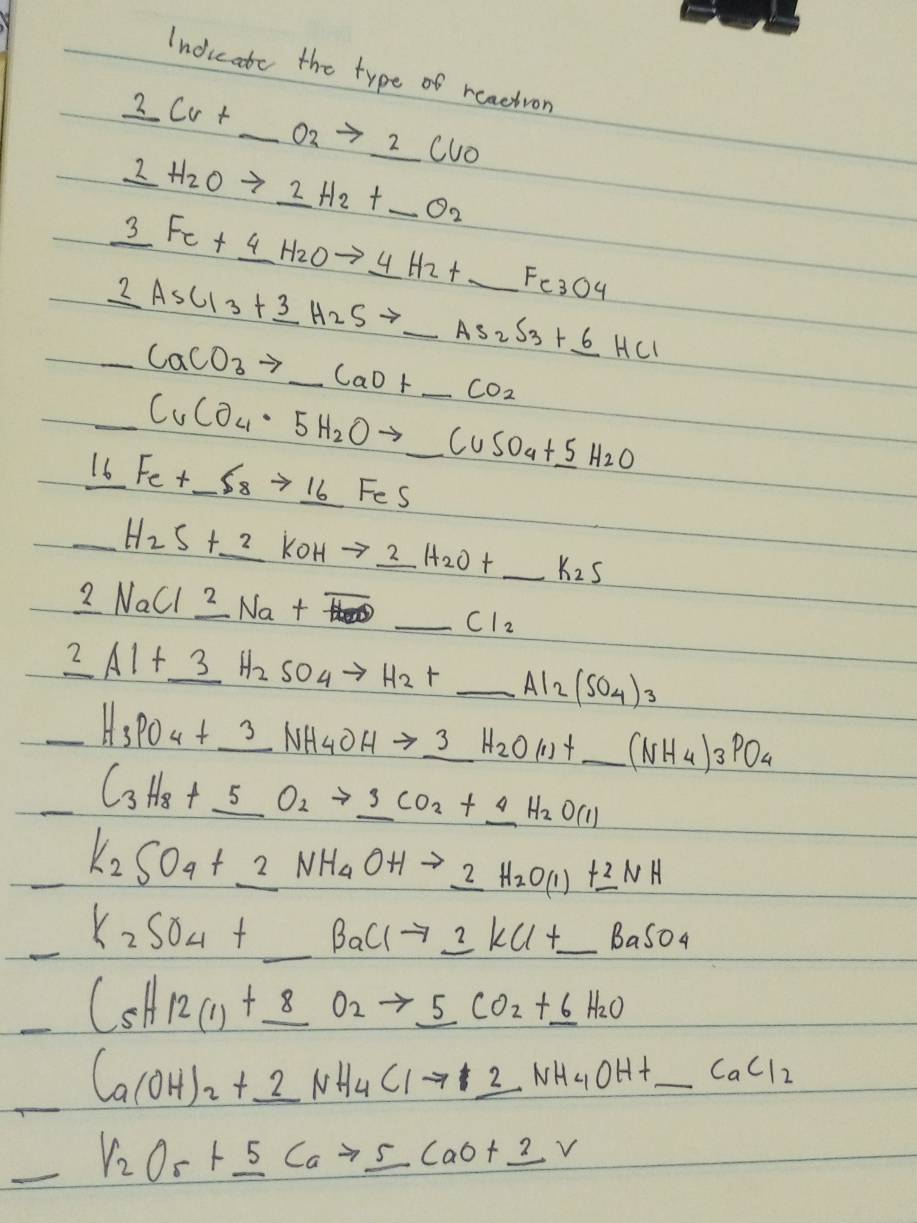 Indicate the type of reaction
2 Cu + __ O2 → 2 CuO
2 H2O → 2 H2 + __ O2
3 Fe + 4 H2O → 4 H2 + __ Fe3O4
2 AsCl3 + 3 H2S → __ As2S3 + 6 HCl
__ CaCO3 → __ CaO + __ CO2
__ CuCO4 · 5H2O → __ CuSO4 + 5 H2O
16 Fe + __ S8 → 16 FeS
__ H2S + 2 KOH → 2 H2O + __ K2S
2 NaCl 2 Na + __ Cl2
2 Al + 3 H2SO4 → H2 + __ Al2(SO4)3
__ H3PO4 + 3 NH4OH → 3 H2O(l) + __ (NH4)3PO4
__ C3H8 + 5 O2 → 3 CO2 + 4 H2O(l)
__ K2SO4 + 2 NH4OH → 2 H2O(l) + 2 NH
__ K2SO4 + __ BaCl → 2 KCl + __ BaSO4
__ C5H12(l) + 8 O2 → 5 CO2 + 6 H2O
__ Ca(OH)2 + 2 NH4Cl → 2 NH4OH + __ CaCl2
__ V2O5 + 5 Ca → 5 CaO + 2 V